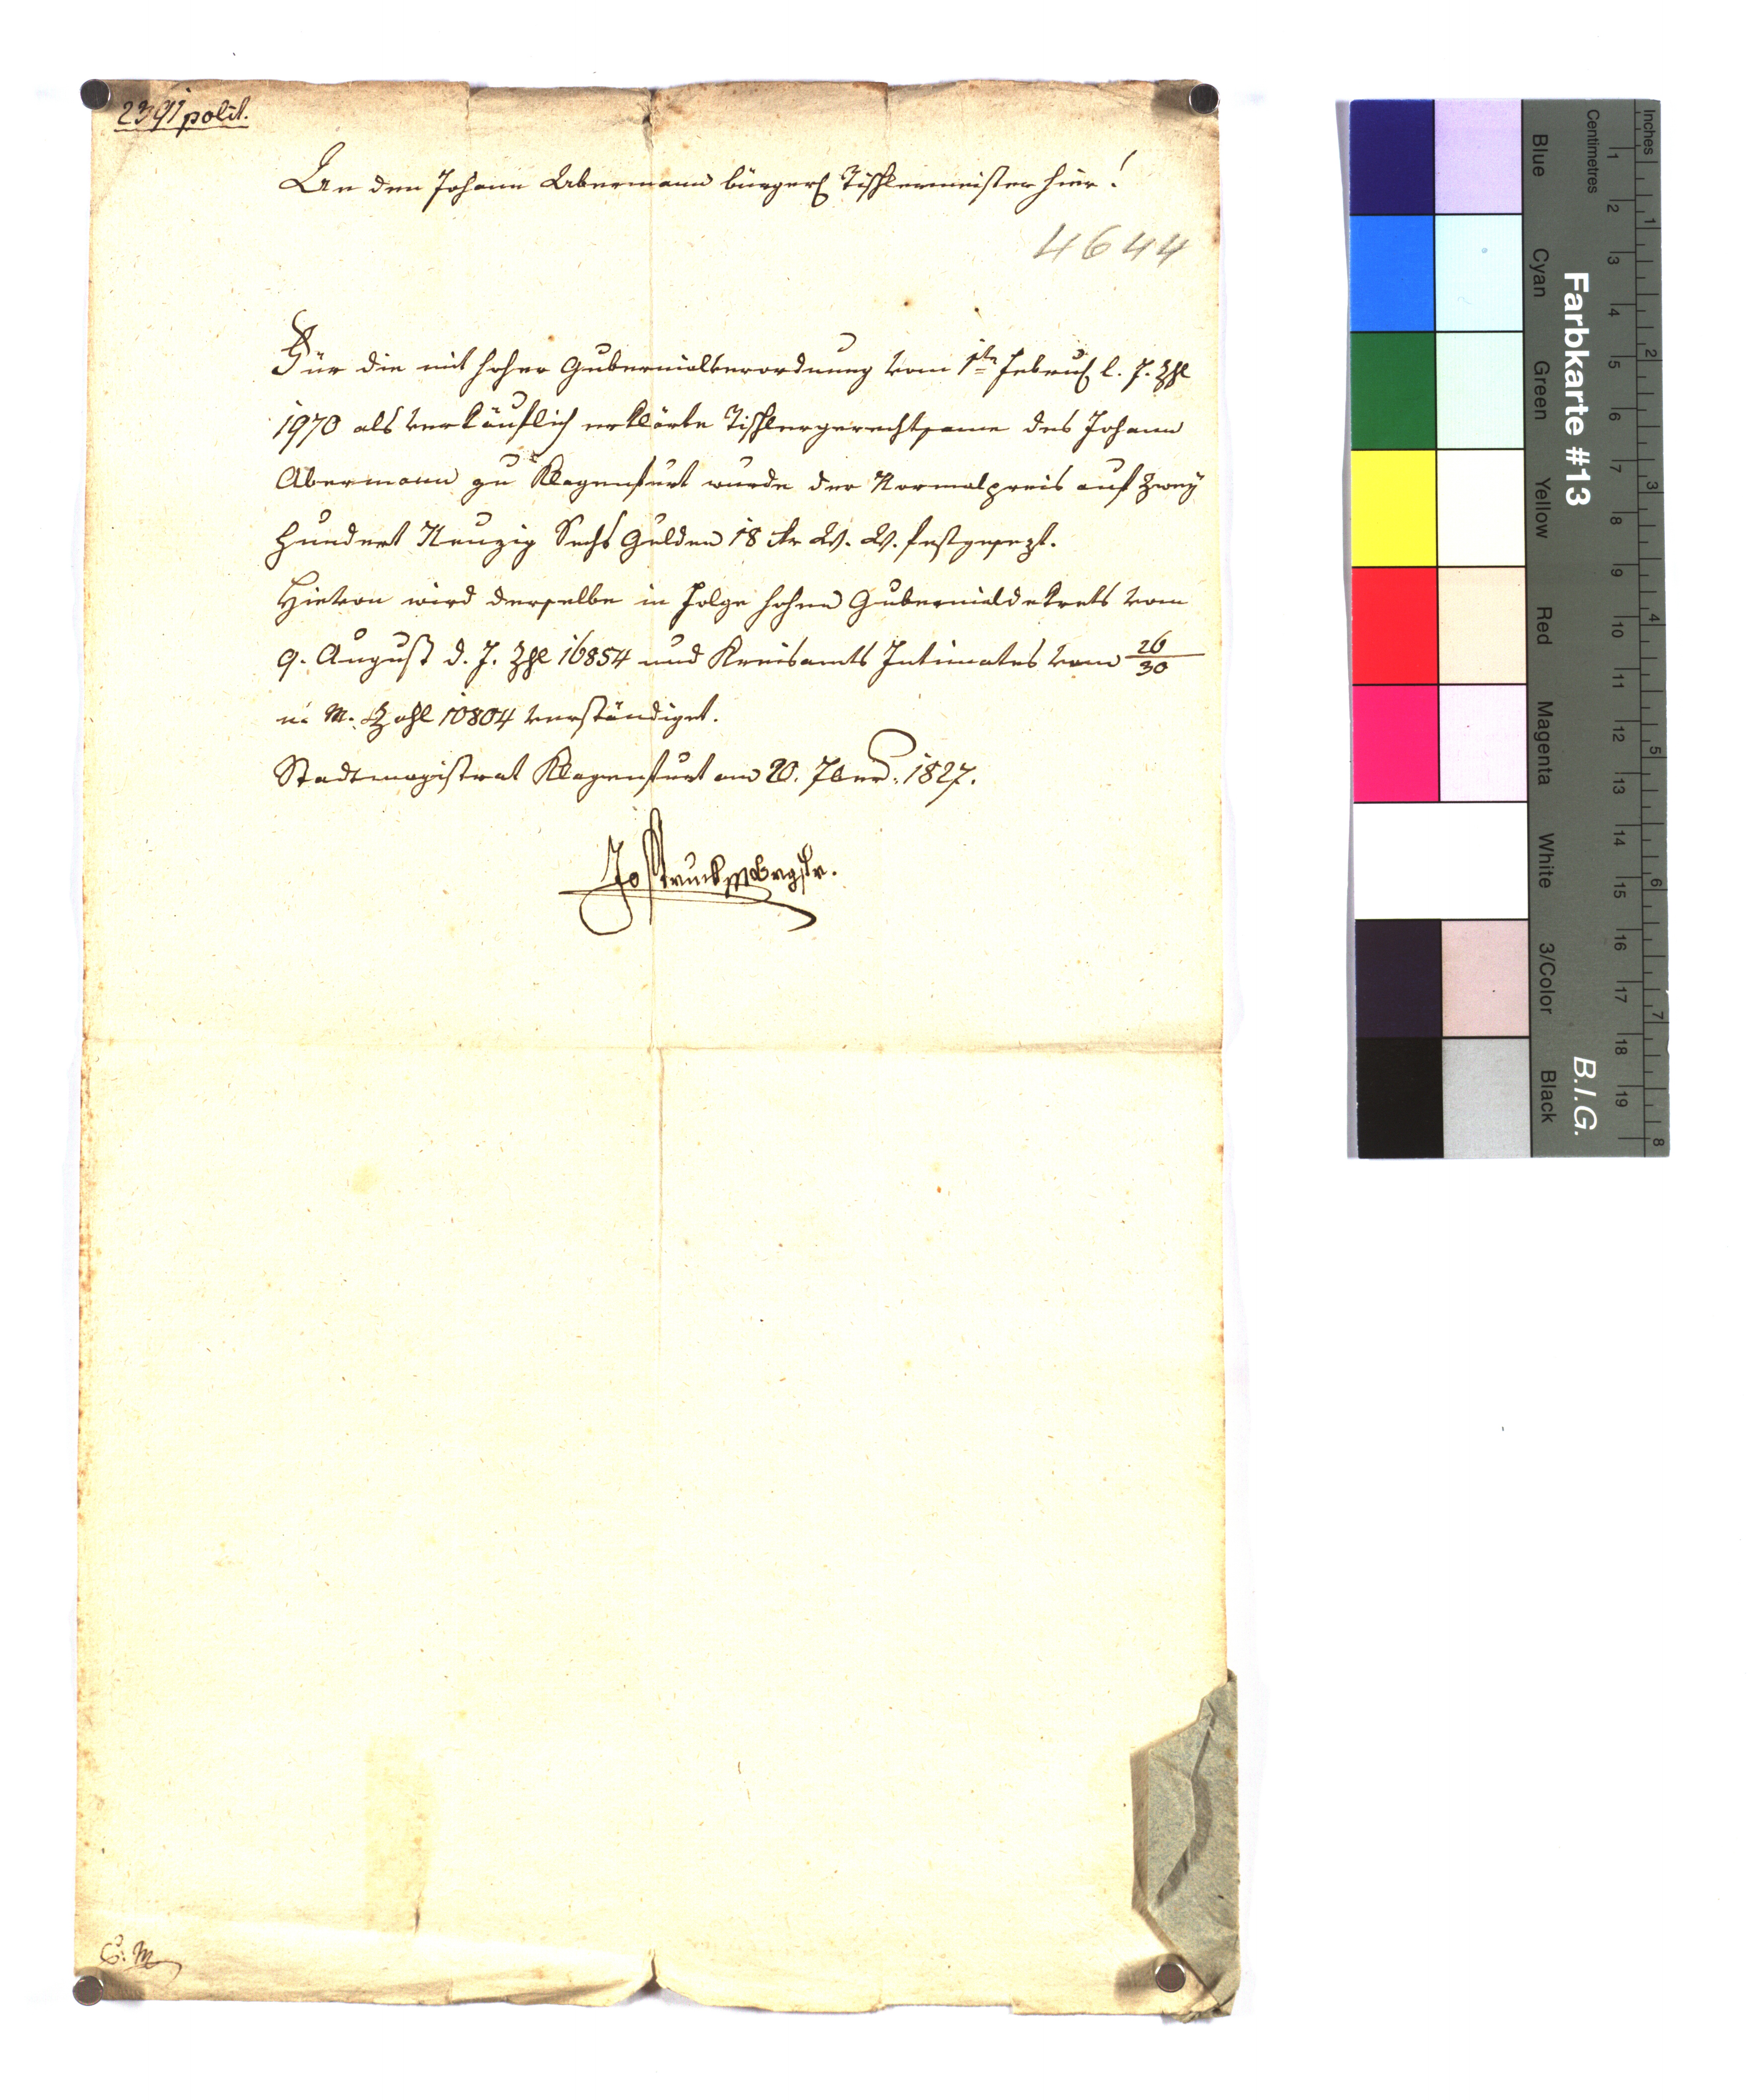 2391 polit.
An den Johann Abermann bürgerl Tischlermeister hier!
4644
Für die mit hoher Gubernialverordnung vom 1ten Februl l. J. Zhl
1970 als verkäuflich erklärte Tischlergerechtsame des Johann
Abermann zu Klagenfurt wurde der Normalpreis auf Zwey
hundert Neuzig Sechs Gulden 18 kr W. W. festgesezt.
Hievon wird derselbe in Folge hohen Gubernialdekrets vom
9. August d. J. Zhl 16854 und Kreisamts Intimates vom 26/30
n. M. Zahl 10804 verständiget.
Stadtmagistrat Klagenfurt am 20. 7ber. 1827.
Jos
C. M
Inches
Centimetres
1 2 3 4 5 6 7 8
1 2 3 4 5 6 7 8 9 10 11 12 13 14 15 16 17 18 19
Farbkarte #13
B.I.G.
Blue
Cyan
Green
Yellow
Red
Magenta
White
3/Color
Black